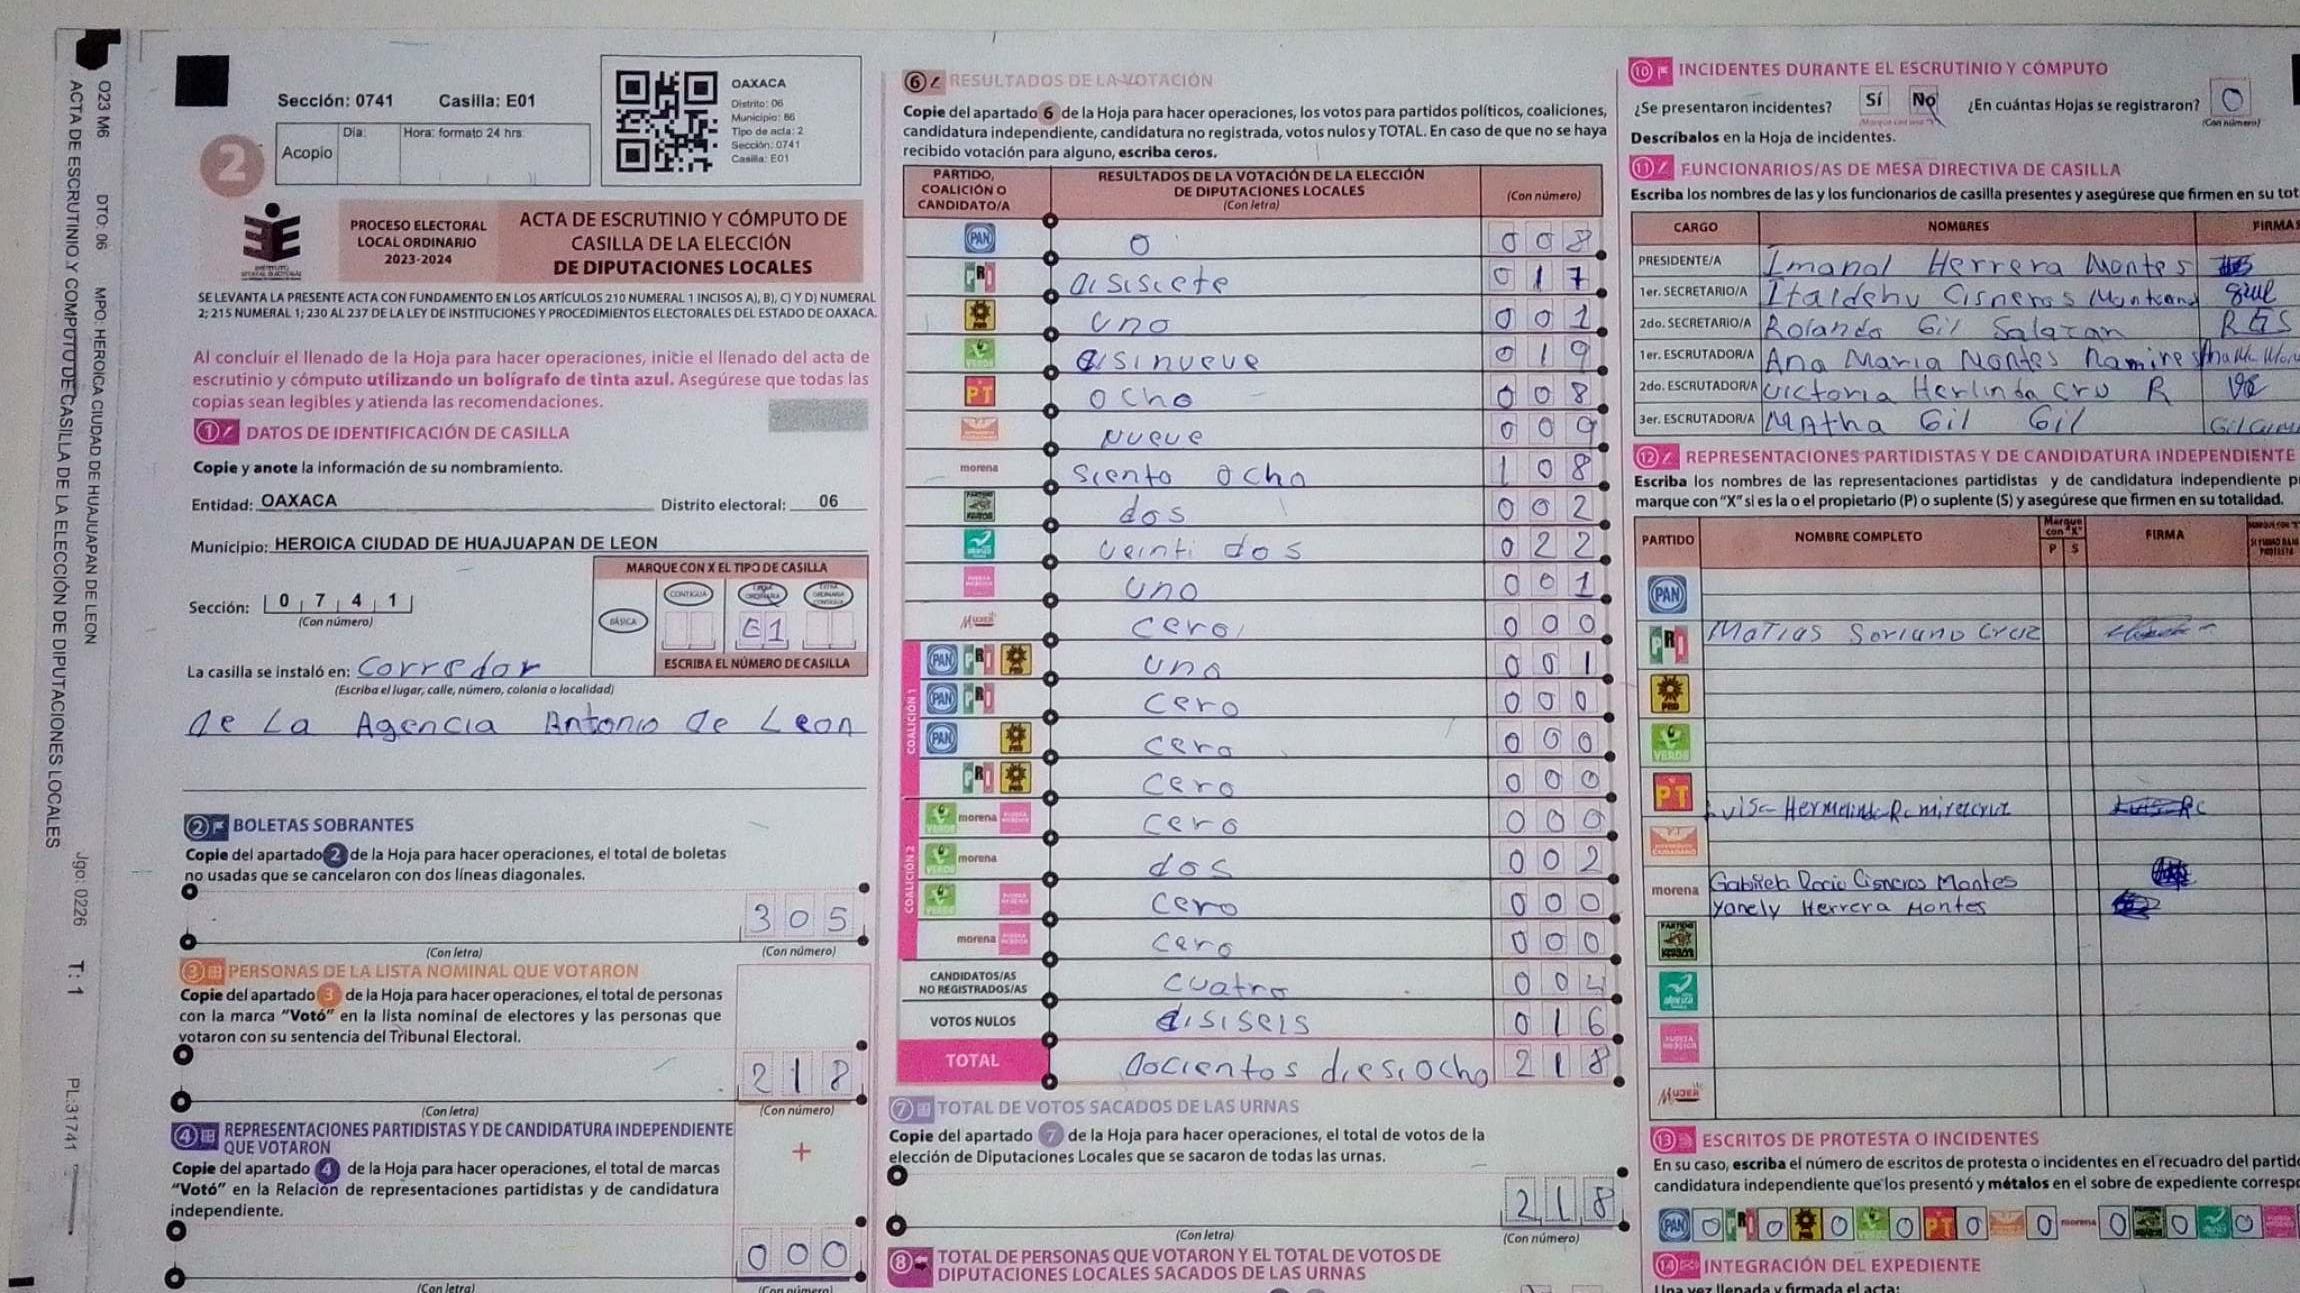 O23 M6 DTO: 06 MPO: HEROICA CIUDAD DE HUAJUAPAN DE LEON
ACTA DE ESCRUTINIO Y CÓMPUTO DE CASILLA DE LA ELECCIÓN DE DIPUTACIONES LOCALES
Jgo: 0226 T: 1 PL:31741
Sección: 0741 Casilla: E01
Acopio Día: Hora: formato 24 hrs
OAXACA
Distrito: 06
Municipio: 86
Tipo de acta: 2
Sección: 0741
Casilla: E01
2
PROCESO ELECTORAL
LOCAL ORDINARIO
2023-2024
ACTA DE ESCRUTINIO Y CÓMPUTO DE
CASILLA DE LA ELECCIÓN
DE DIPUTACIONES LOCALES
SE LEVANTA LA PRESENTE ACTA CON FUNDAMENTO EN LOS ARTÍCULOS 210 NUMERAL 1 INCISOS A), B), C) Y D) NUMERAL
2; 215 NUMERAL 1; 230 AL 237 DE LA LEY DE INSTITUCIONES Y PROCEDIMIENTOS ELECTORALES DEL ESTADO DE OAXACA.
Al concluír el llenado de la Hoja para hacer operaciones, inicie el llenado del acta de
escrutinio y cómputo utilizando un bolígrafo de tinta azul. Asegúrese que todas las
copias sean legibles y atienda las recomendaciones.
1 DATOS DE IDENTIFICACIÓN DE CASILLA
Copie y anote la información de su nombramiento.
Entidad: OAXACA Distrito electoral: 06
Municipio: HEROICA CIUDAD DE HUAJUAPAN DE LEON
MARQUE CON X EL TIPO DE CASILLA
BÁSICA CONTIGUA
E1
ESCRIBA EL NÚMERO DE CASILLA
Sección: 0 7 4 1
(Con número)
La casilla se instaló en: Corredor
(Escriba el lugar, calle, número, colonia o localidad)
de La Agencia Antonio de Leon
2 BOLETAS SOBRANTES
Copie del apartado 2 de la Hoja para hacer operaciones, el total de boletas
no usadas que se cancelaron con dos líneas diagonales.
305
(Con letra) (Con número)
3 PERSONAS DE LA LISTA NOMINAL QUE VOTARON
Copie del apartado 3 de la Hoja para hacer operaciones, el total de personas
con la marca “Votó” en la lista nominal de electores y las personas que
votaron con su sentencia del Tribunal Electoral.
218
(Con letra) (Con número)
4 REPRESENTACIONES PARTIDISTAS Y DE CANDIDATURA INDEPENDIENTE
QUE VOTARON
+
Copie del apartado 4 de la Hoja para hacer operaciones, el total de marcas
“Votó” en la Relación de representaciones partidistas y de candidatura
independiente.
000
(Con letra) (Con número)
6 RESULTADOS DE LA VOTACIÓN
Copie del apartado 6 de la Hoja para hacer operaciones, los votos para partidos políticos, coaliciones,
candidatura independiente, candidatura no registrada, votos nulos y TOTAL. En caso de que no se haya
recibido votación para alguno, escriba ceros.
PARTIDO, COALICIÓN O CANDIDATO/A
RESULTADOS DE LA VOTACIÓN DE LA ELECCIÓN
DE DIPUTACIONES LOCALES
(Con letra) (Con número)
PAN 0 008
PRI disisiete 017
PRD uno 001
VERDE disinueve 019
PT ocho 008
nueve 009
morena siento ocho 108
dos 002
veinti dos 022
uno 001
MUJER cero 000
COALICIÓN 1
PAN PRI PRD uno 001
PAN PRI cero 000
PAN PRD cero 000
PRI PRD cero 000
COALICIÓN 2
VERDE morena cero 000
VERDE morena dos 002
VERDE cero 000
morena cero 000
CANDIDATOS/AS
NO REGISTRADOS/AS cuatro 004
VOTOS NULOS disiseis 016
TOTAL docientos diesiocho 218
7 TOTAL DE VOTOS SACADOS DE LAS URNAS
Copie del apartado 7 de la Hoja para hacer operaciones, el total de votos de la
elección de Diputaciones Locales que se sacaron de todas las urnas.
218
(Con letra) (Con número)
8 TOTAL DE PERSONAS QUE VOTARON Y EL TOTAL DE VOTOS DE
DIPUTACIONES LOCALES SACADOS DE LAS URNAS
10 INCIDENTES DURANTE EL ESCRUTINIO Y CÓMPUTO
¿Se presentaron incidentes? Sí No ¿En cuántas Hojas se registraron? 0
(Con número)
Descríbalos en la Hoja de incidentes.
11 FUNCIONARIOS/AS DE MESA DIRECTIVA DE CASILLA
Escriba los nombres de las y los funcionarios de casilla presentes y asegúrese que firmen en su tot
CARGO NOMBRES FIRMAS
PRESIDENTE/A Imanol Herrera Montes
1er. SECRETARIO/A Italdehv Cisneros
2do. SECRETARIO/A Rolando Gil Salazan RGS
1er. ESCRUTADOR/A Ana Maria Montes Ramires
2do. ESCRUTADOR/A Victoria Herlinda Cru R
3er. ESCRUTADOR/A Matha Gil Gil
12 REPRESENTACIONES PARTIDISTAS Y DE CANDIDATURA INDEPENDIENTE
Escriba los nombres de las representaciones partidistas y de candidatura independiente p
marque con “X” si es la o el propietario (P) o suplente (S) y asegúrese que firmen en su totalidad.
PARTIDO NOMBRE COMPLETO Marque con "X" P S FIRMA
PAN
PRI Matias Soriano Cruz
PRD
VERDE
PT
morena Gabriela Rocio Cisneros Montes
Yanely Herrera Montes
MUJER
13 ESCRITOS DE PROTESTA O INCIDENTES
En su caso, escriba el número de escritos de protesta o incidentes en el recuadro del partid
candidatura independiente que los presentó y métalos en el sobre de expediente corresp
PAN 0 PRI 0 0 0 PT 0 0 morena 0 0 0
14 INTEGRACIÓN DEL EXPEDIENTE
Una vez llenada y firmada el acta: